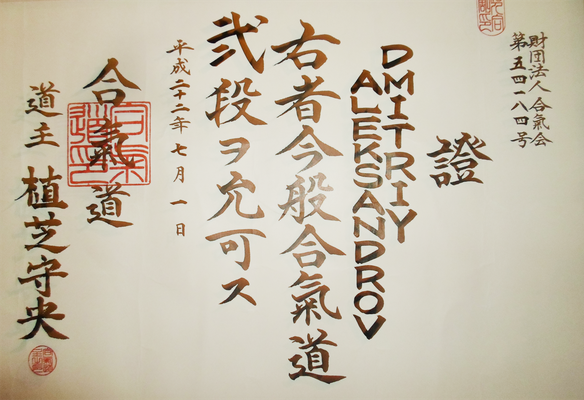 財団法人合氣会
第五四一八四号
證
DMITRIY
ALEKSANDROV
右者今般合氣道
弐段ヲ允可ス
平成二十二年七月一日
合氣道
道主植芝守央